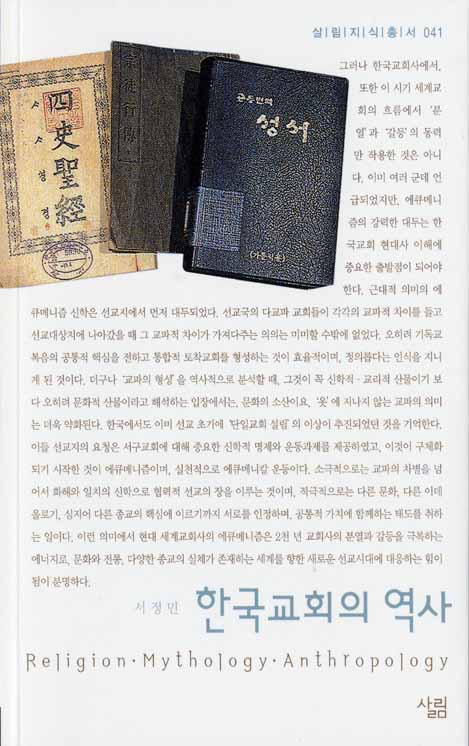 살|림|지|식|총|서 041
四史聖經
宗徒行傳
공동번역
성서
(가톨릭용)
그러나 한국교회사에서,
또한 이 시기 세계교
회의 흐름에서 '분
열'과 '갈등'의 동력
만 작용한 것은 아니
다. 이미 여러 군데 언
급되었지만, 에큐메니
즘의 강력한 대두는 한
국교회 현대사 이해에
중요한 출발점이 되어야
한다. 근대적 의미의 에
큐메니즘 신학은 선교지에서 먼저 대두되었다. 선교국의 다교파 교회들이 각각의 교파적 차이를 들고
선교대상지에 나아갔을 때 그 교파적 차이가 가져다주는 의의는 미미할 수밖에 없었다. 오히려 기독교
복음의 공통적 핵심을 전하고 통합적 토착교회를 형성하는 것이 효율적이며, 정의롭다는 인식을 지니
게 된 것이다. 더구나 '교파의 형성'을 역사적으로 분석할 때, 그것이 꼭 신학적·교리적 산물이기 보
다 오히려 문화적 산물이라고 해석하는 입장에서는, 문화의 소산이요, '옷'에 지나지 않는 교파의 의미
는 더욱 약화된다. 한국에서도 이미 선교 초기에 '단일교회 설립'의 이상이 추진되었던 것을 기억한다.
이들 선교지의 요청은 서구교회에 대해 중요한 신학적 명제와 운동과제를 제공하였고, 이것이 구체화
되기 시작한 것이 에큐메니즘이며, 실천적으로 에큐메니칼 운동이다. 소극적으로는 교파의 차별을 넘
어서 화해와 일치의 신학으로 협력적 선교의 장을 이루는 것이며, 적극적으로는 다른 문화, 다른 이데
올로기, 심지어 다른 종교의 핵심에 이르기까지 서로를 인정하며, 공통적 가치에 함께하는 태도를 취하
는 일이다. 이런 의미에서 현대 세계교회사의 에큐메니즘은 2천 년 교회사의 분열과 갈등을 극복하는
에너지로, 문화와 전통, 다양한 종교의 실체가 존재하는 세계를 향한 새로운 선교시대에 대응하는 힘이
됨이 분명하다.
서정민 한국교회의 역사
Religion·Mythology·Anthropology
살림